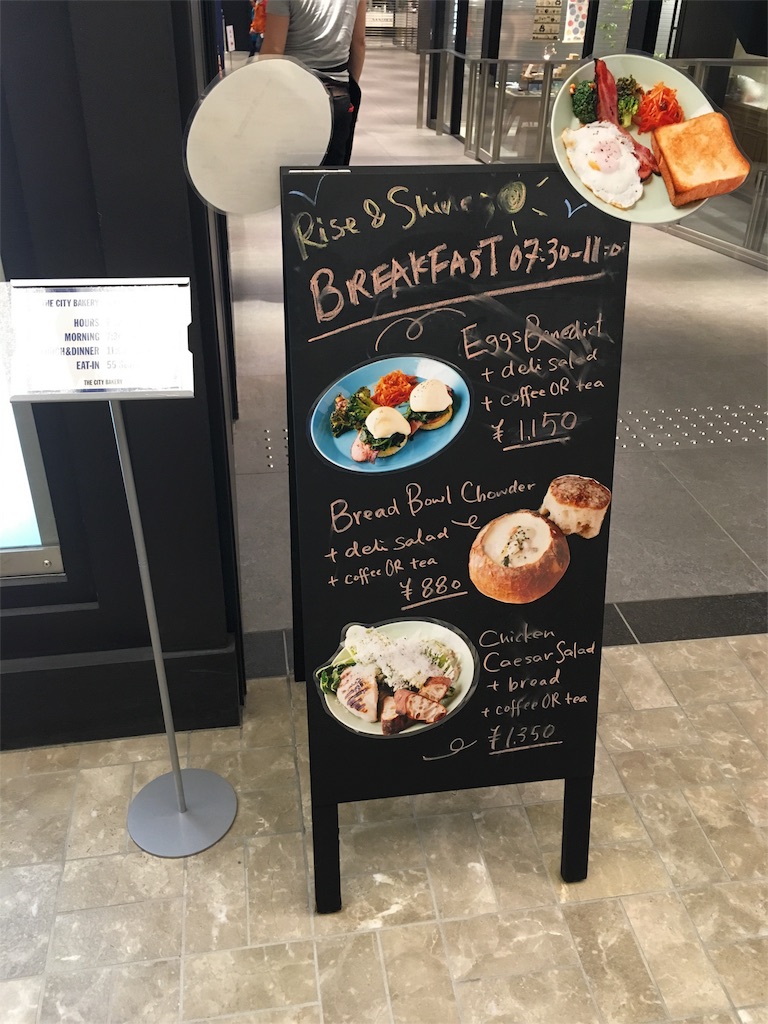 Rise & Shine
BREAKFAST 07:30-11:
Eggs Benedict
+ deli salad
+ coffee OR tea
¥ 1,150
Bread Bowl Chowder
+ deli salad
+ coffee OR tea
¥ 880
Chicken
Caesar Salad
+ bread
+ coffee OR tea
¥ 1,350
THE CITY BAKERY
HOURS
MORNING
&DINNER
EAT-IN 55
THE CITY BAKERY